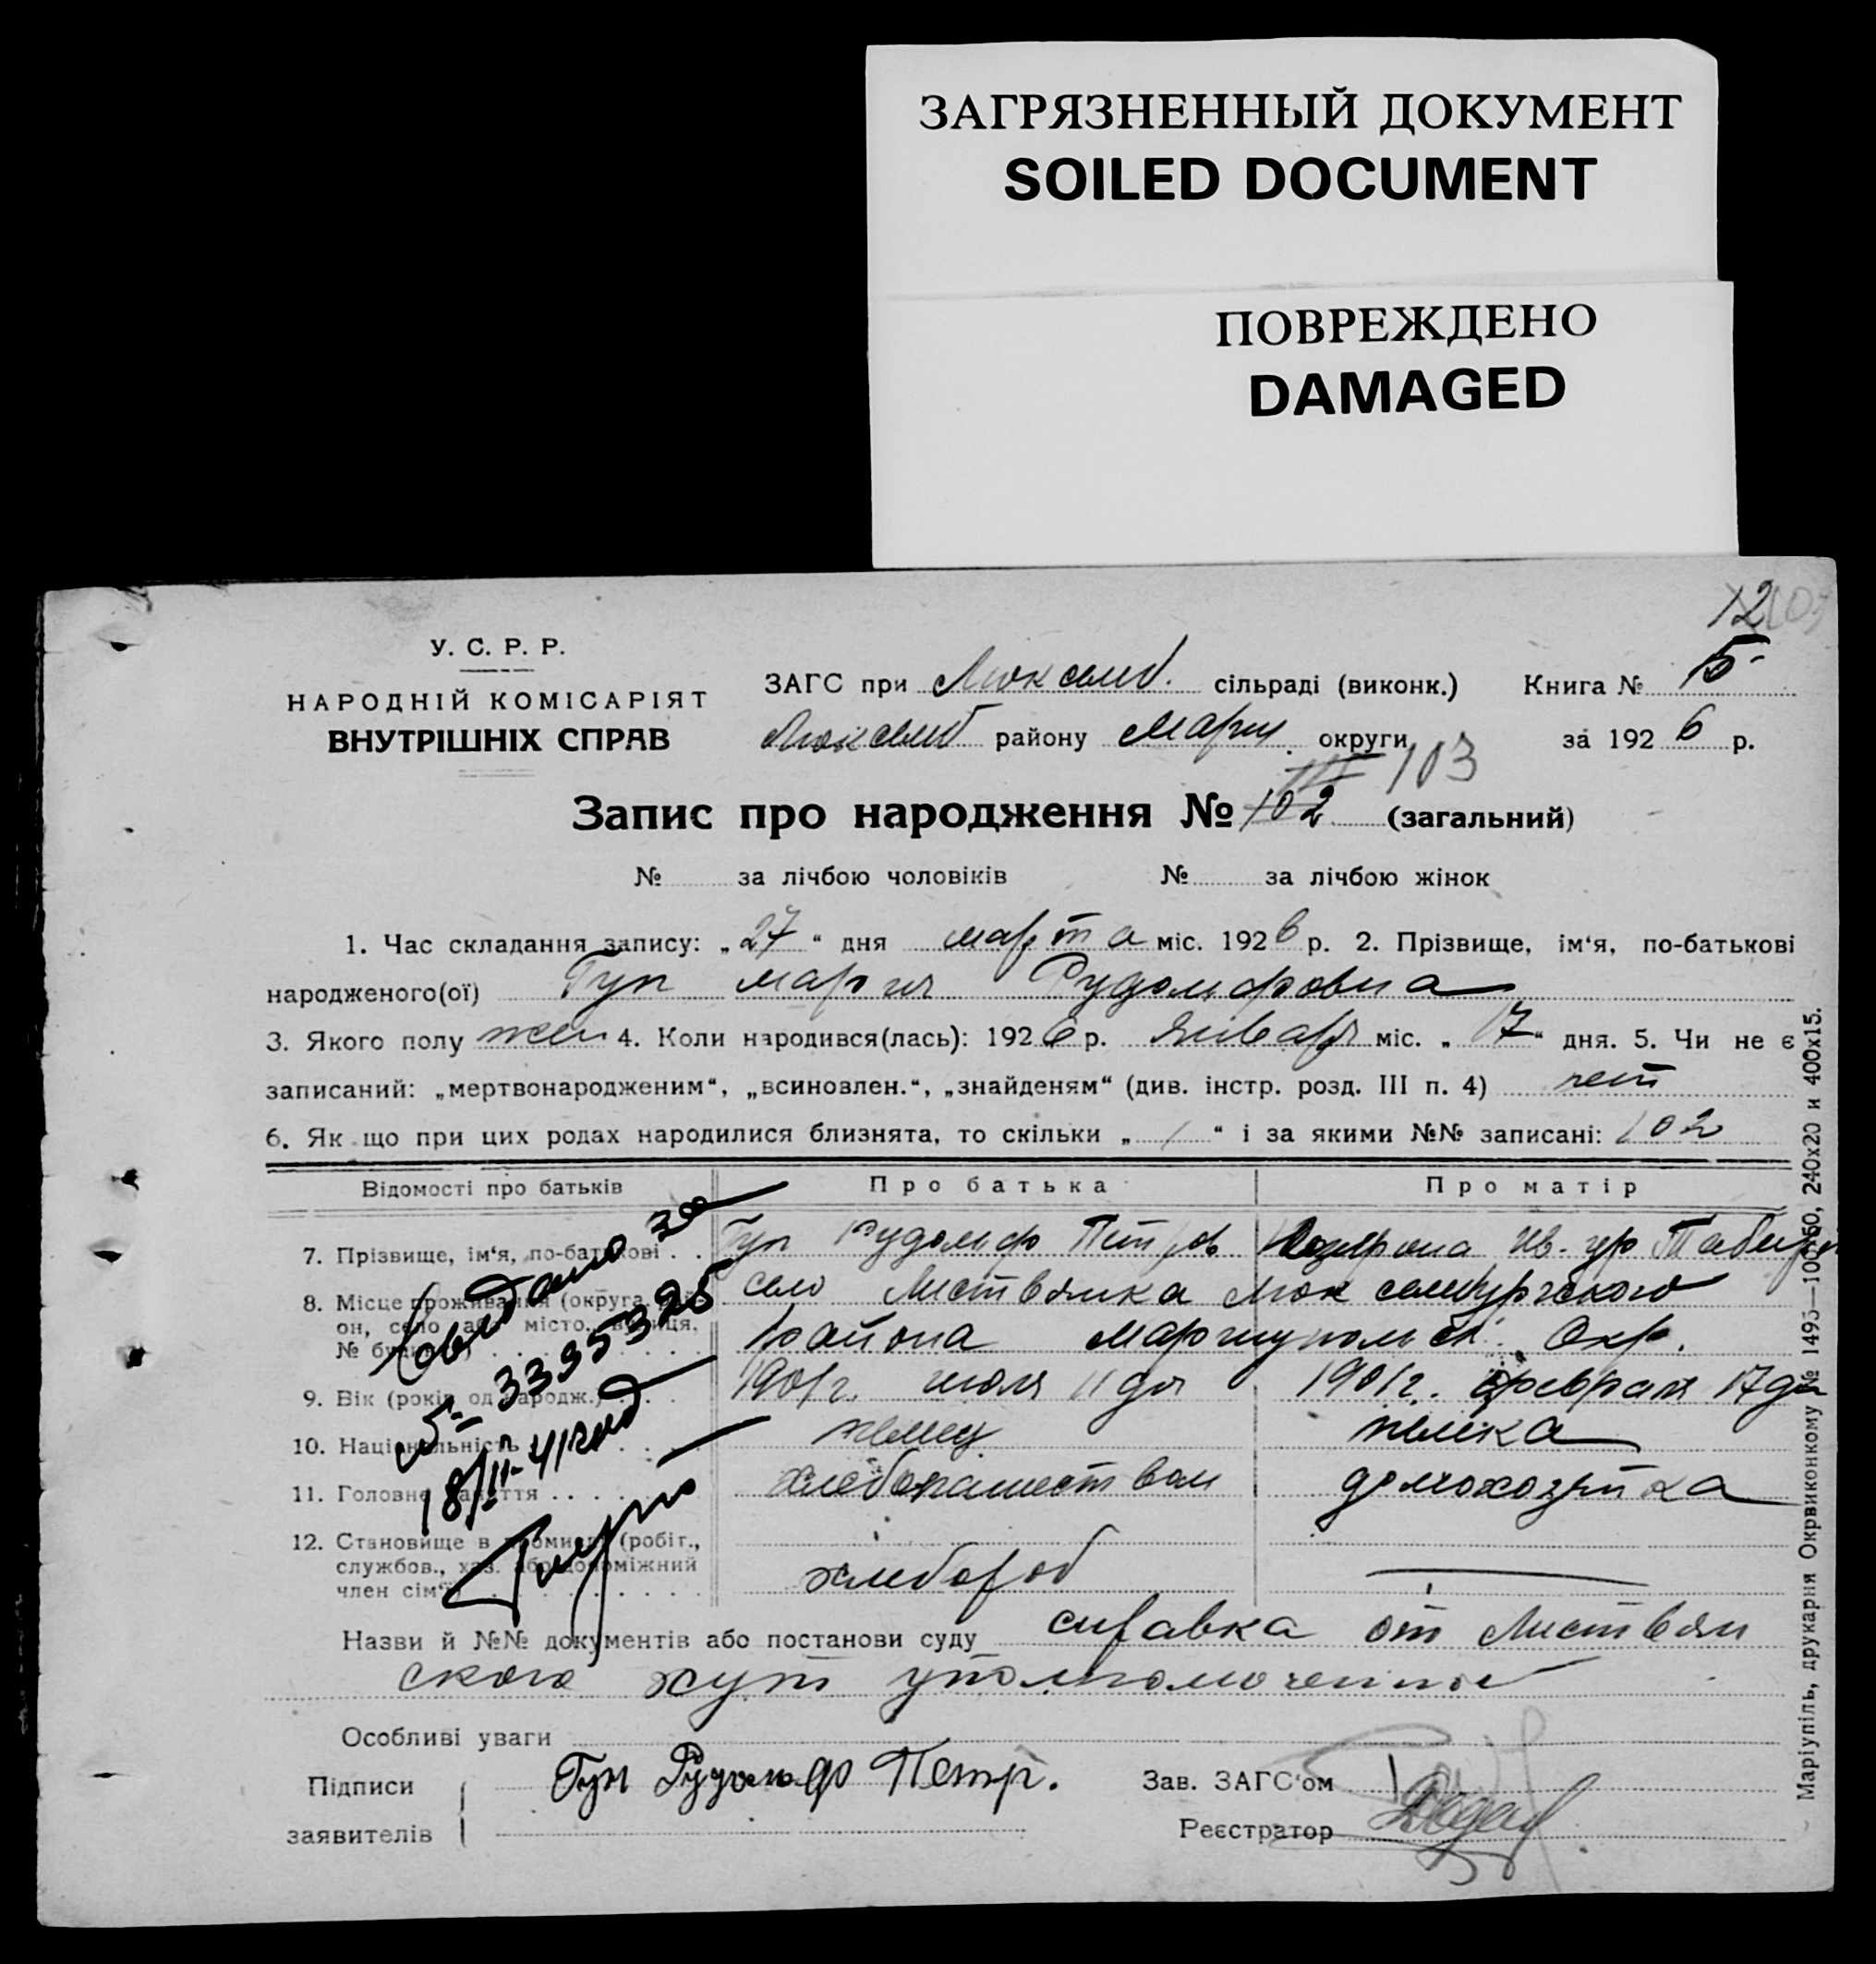 ЗАГРЯЗНЕННЫЙ ДОКУМЕНТ
SOILED DOCUMENT
ПОВРЕЖДЕНО
DAMAGED
12
У. С. Р. Р.
НАРОДНІЙ КОМІСАРІЯТ
ВНУТРІШНІХ СПРАВ
ЗАГС при Люксемб. сільраді (виконк.) Книга № 5
Люксемб району Мариу. округи за 1926 р.
103
Запис про народження № 102 (загальний)
№ за лічбою чоловіків № за лічбою жінок
1. Час складання запису: „27“ дня марта міс. 1926 р. 2. Прізвище, ім‘я, по-батькові
народженого(ої) Гун Мария Рудольфовна
3. Якого полу жен 4. Коли народився(лась): 1926 р. января міс. „17“ дня. 5. Чи не є
записаний: „мертвонародженим“, „всиновлен.“, „знайденям“ (див. інстр. розд. III п. 4) нет
6. Як що при цих родах народилися близнята, то скільки „ / “ і за якими №№ записані: 102
Відомості про батьків Про батька Про матір
7. Прізвище, ім‘я, по-батькові . . Гун Рудольф Петров Ив.
8. Місце проживання (округа, рай- село Листвянка Люксембургского
он, село або місто, вулиця, района Мариупольск. Окр.
№ будинку)
9. Вік (років од народж.) 1901 г. июля 11 дня 1901 г. февраля 17 дня
10. Національність немец немка
11. Головне заняття . . . . хлебопашеством домохозяйка
12. Становище в промислі (робіт.,
службов., хаз. або допоміжний
член сім‘ї) хлебороб —
Видано
3335325
18/II-41 год
Назви й №№ документів або постанови суду справка от Листвян
ского хут уполномоченное
Особливі уваги
Підписи Гун Рудольф Петр. Зав. ЗАГС‘ом
заявителів Реєстратор
Маріупіль, друкарня Окрвиконкому № 1495—100х50, 240х20 и 400х15.